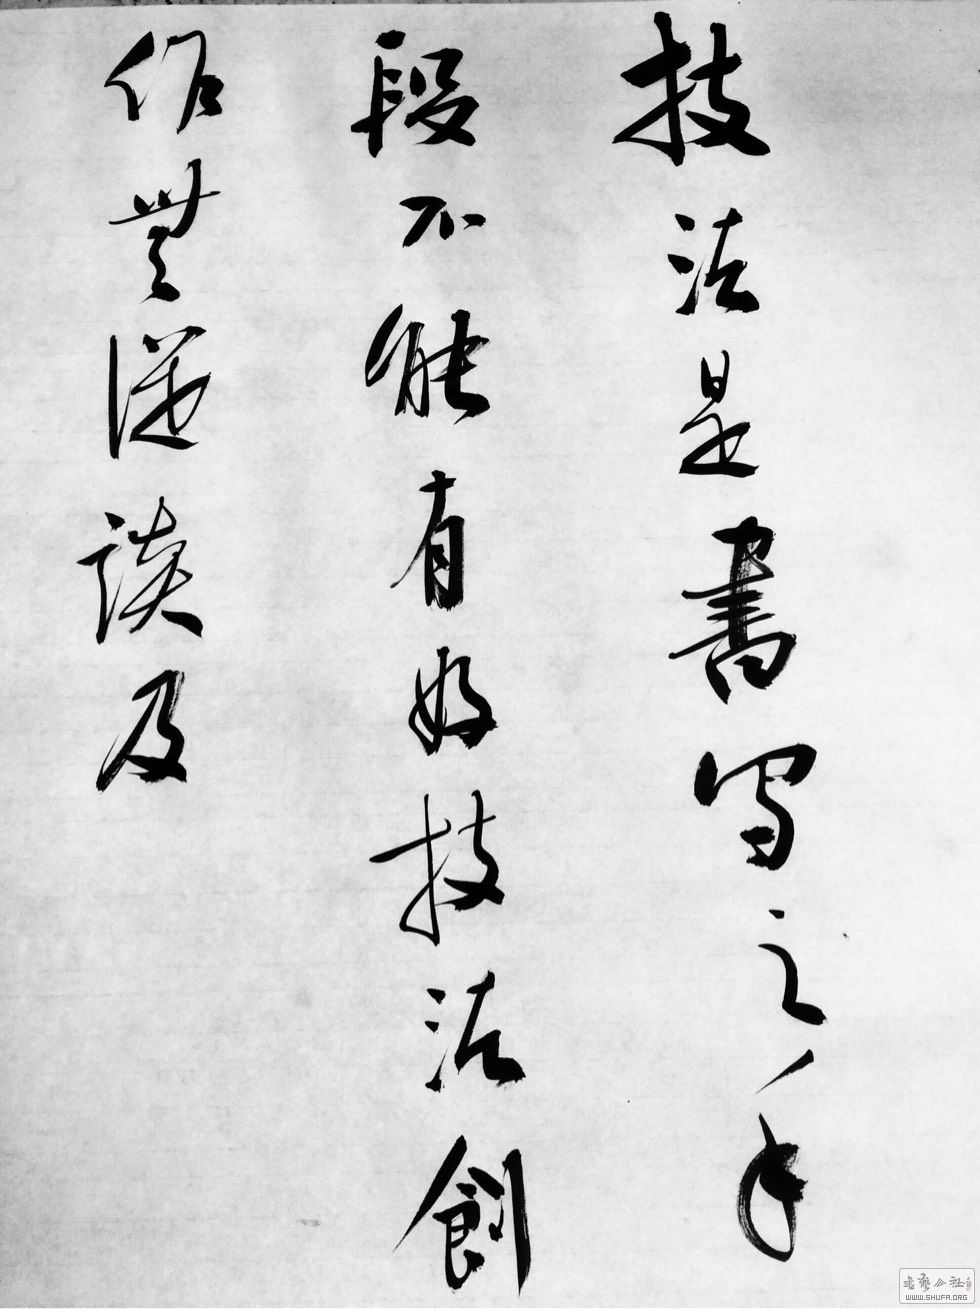 技法是書寫之手
段不能有好技法創
作無從談及
書藝公社
WWW.SHUFA.ORG